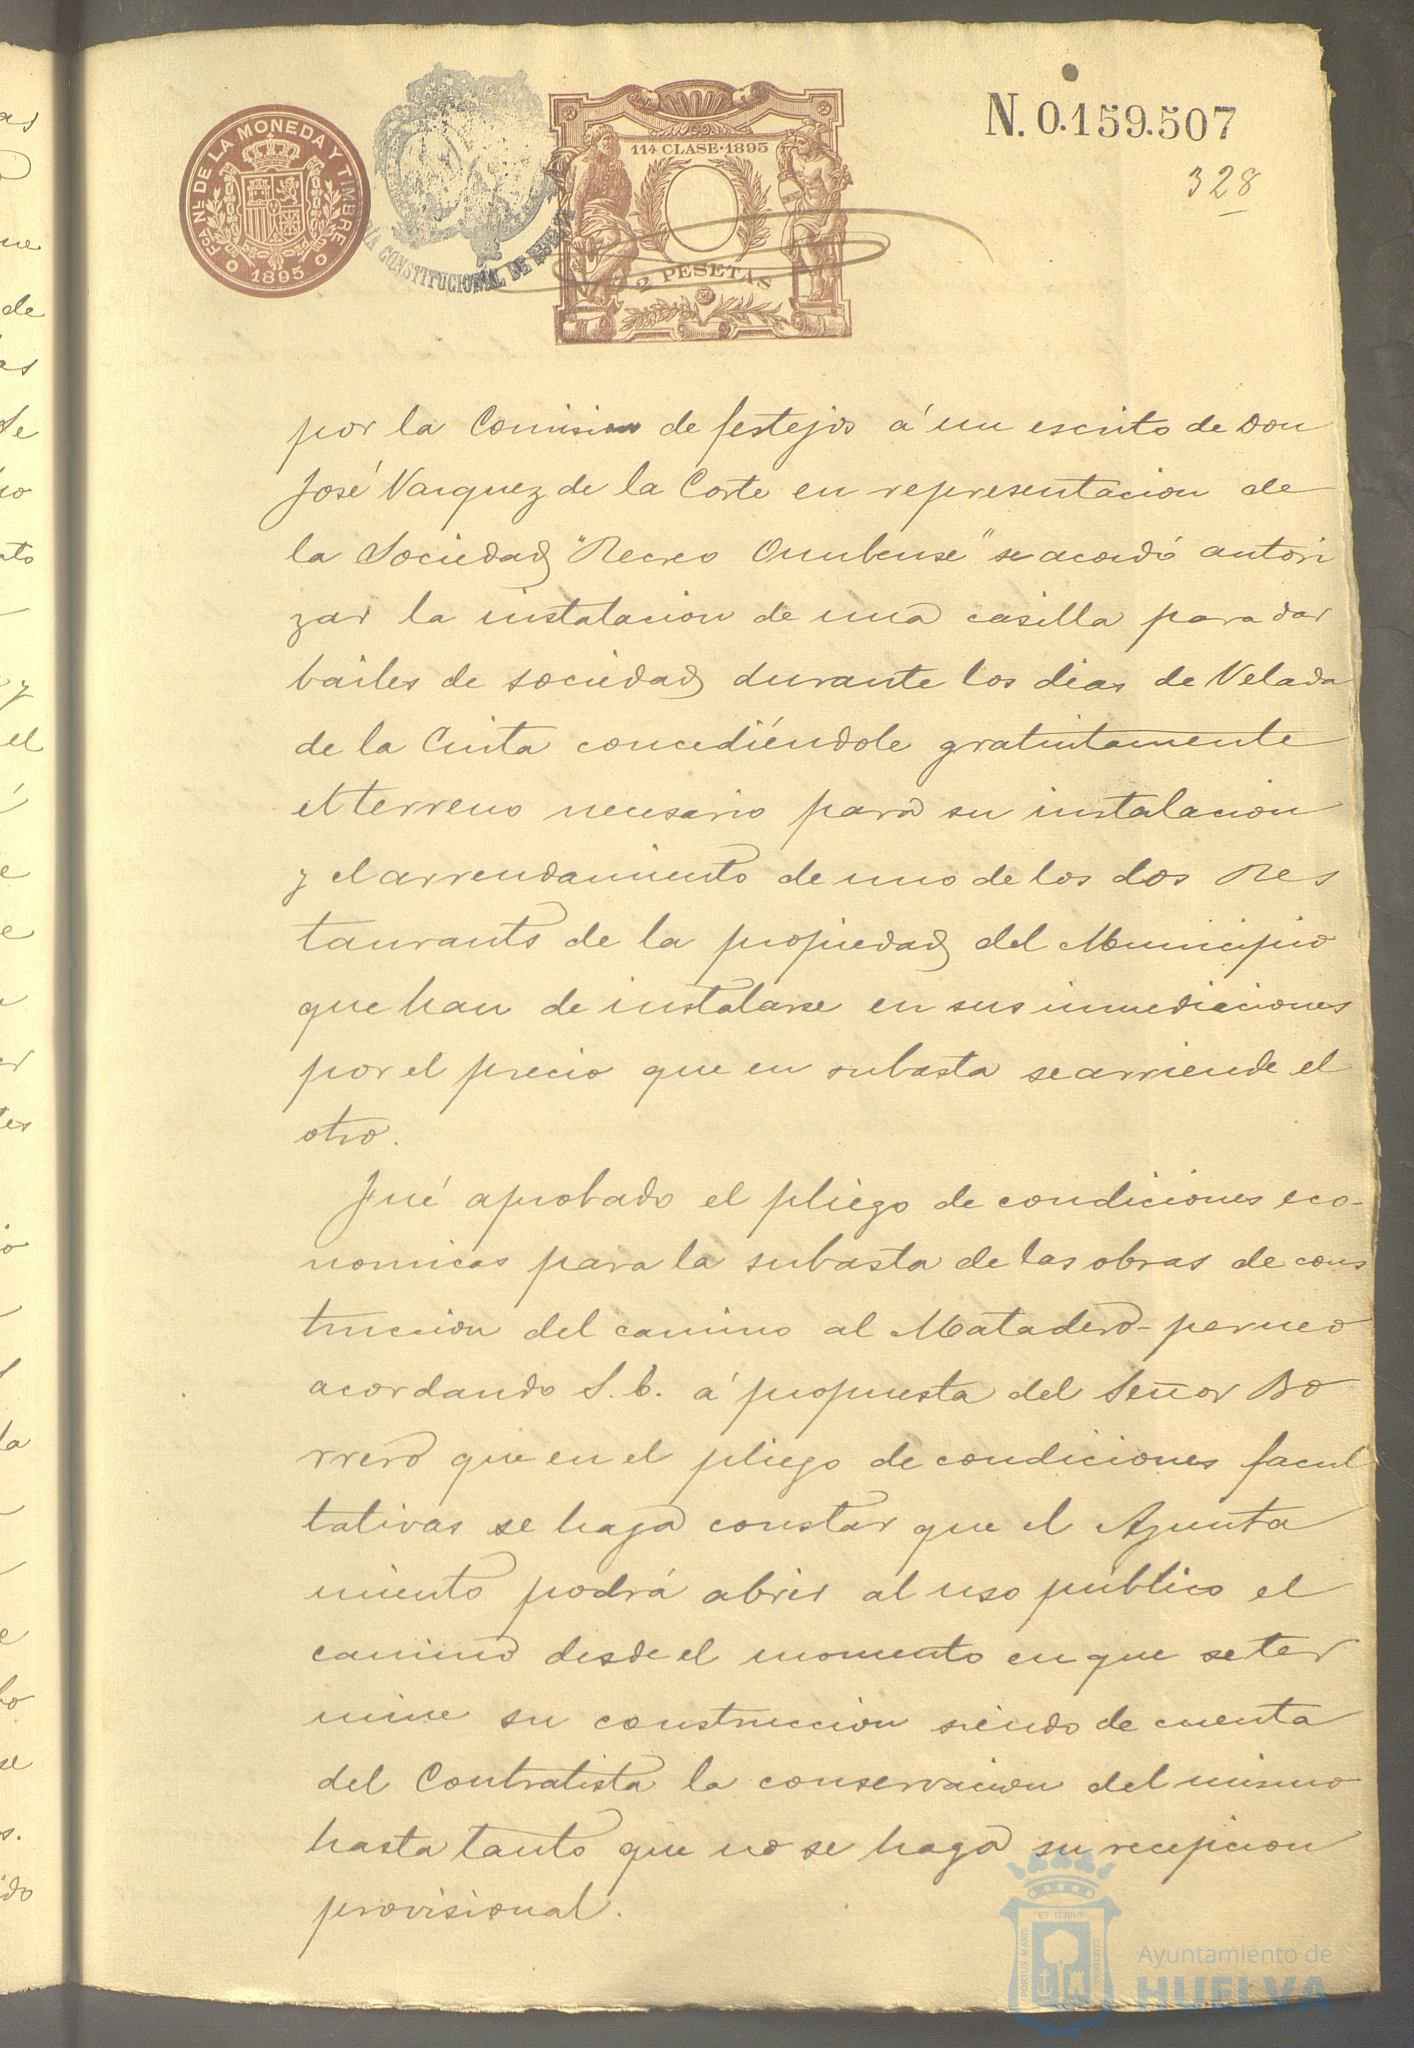 Fca. Nl. DE LA MONEDA Y TIMBRE
1895
CONSTITUCIONAL DE HUELVA
11ª CLASE·1895
2 PESETAS
N. 0.159.507
328
por la Comision de festejos á un escrito de Don
José Vazquez de la Corte en representacion de
la Sociedad "Recreo Onubense" se acordó autori
zar la instalacion de una casilla para dar
bailes de sociedad durante los dias de Velada
de la Cinta concediéndole gratuitamente
el terreno necesario para su instalacion
y el arrendamiento de uno de los dos Res
taurants de la propiedad del Municipio
que han de instalarse en sus inmediaciones
por el precio que en subasta se arriende el
otro.
Fué aprobado el pliego de condiciones eco-
nomicas para la subasta de las obras de cons
truccion del camino al Matadero-perneo
acordando S.E. á propuesta del Señor Bo
rrero que en el pliego de condiciones facul
tativas se haga constar que el Ayunta
miento podrá abrir al uso público el
camino desde el momento en que se ter
mine su construccion siendo de cuenta
del Contratista la conservacion del mismo
hasta tanto que no se haga su recepcion
provisional.
PORTUS MARIS ET TERRÆ CUSTODIA
Ayuntamiento de
HUELVA